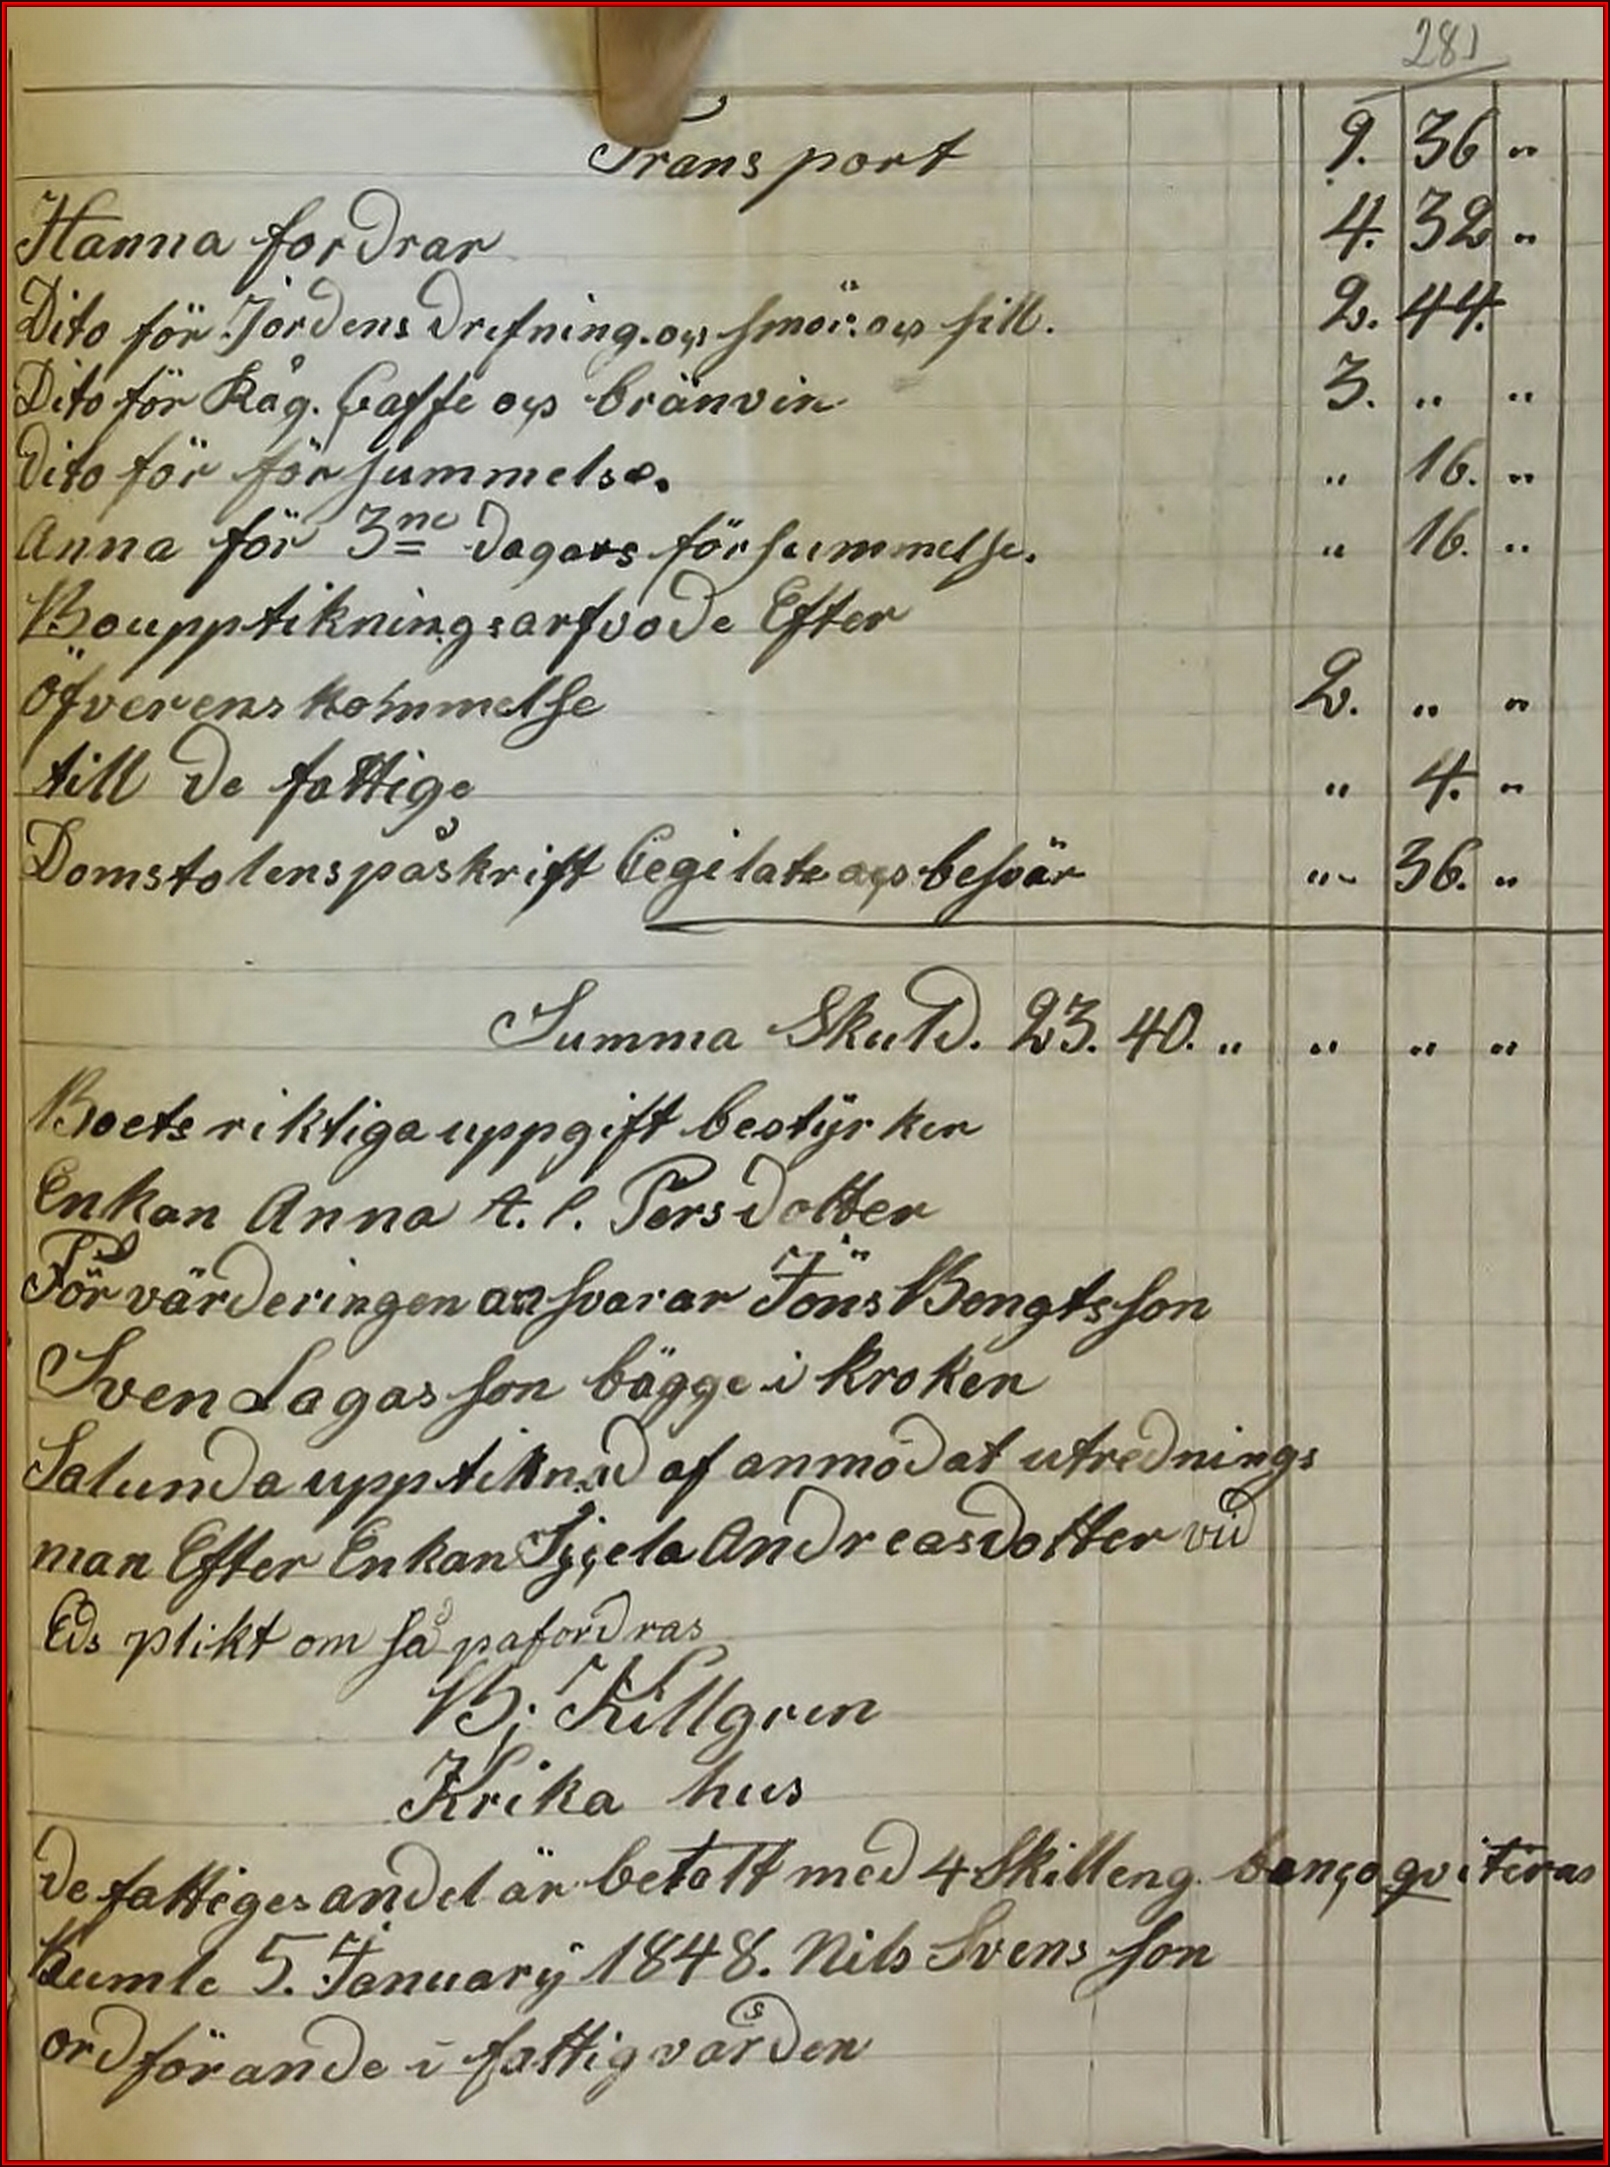 281
Transport 9. 36 "
Hanna fordrar 4. 32 "
Dito för Jordens drifning. och smör. och sill. 2. 44.
Dito för Råg. Caffe och bränvin 3. " "
Dito för försummelse. " 16. "
Anna för 3ne dagars försummelse. " 16. "
Boupptikningsarfvode Efter
Öfverenskommelse 2. " "
till de fattige " 4. "
Domstolens påskrift och besvär " 36. "
Summa Skuld. 23. 40. " " " "
Boets riktiga uppgift bestÿrker
Enkan Anna Persdotter
För värderingen ansvarar Jöns Bengtsson
Sven Lagasson bägge i Kroken
Salunda upptiknad af anmodat utrednings
man Efter Enkan Andreasdotter vid
Eds plikt om så pafordras
Killgren
Krika hus
De fattiges andel är betalt med 4 Skilleng. banço qviteras
Kumle 5. Januarÿ 1848. Nils Svensson
ordförande i fattigvården